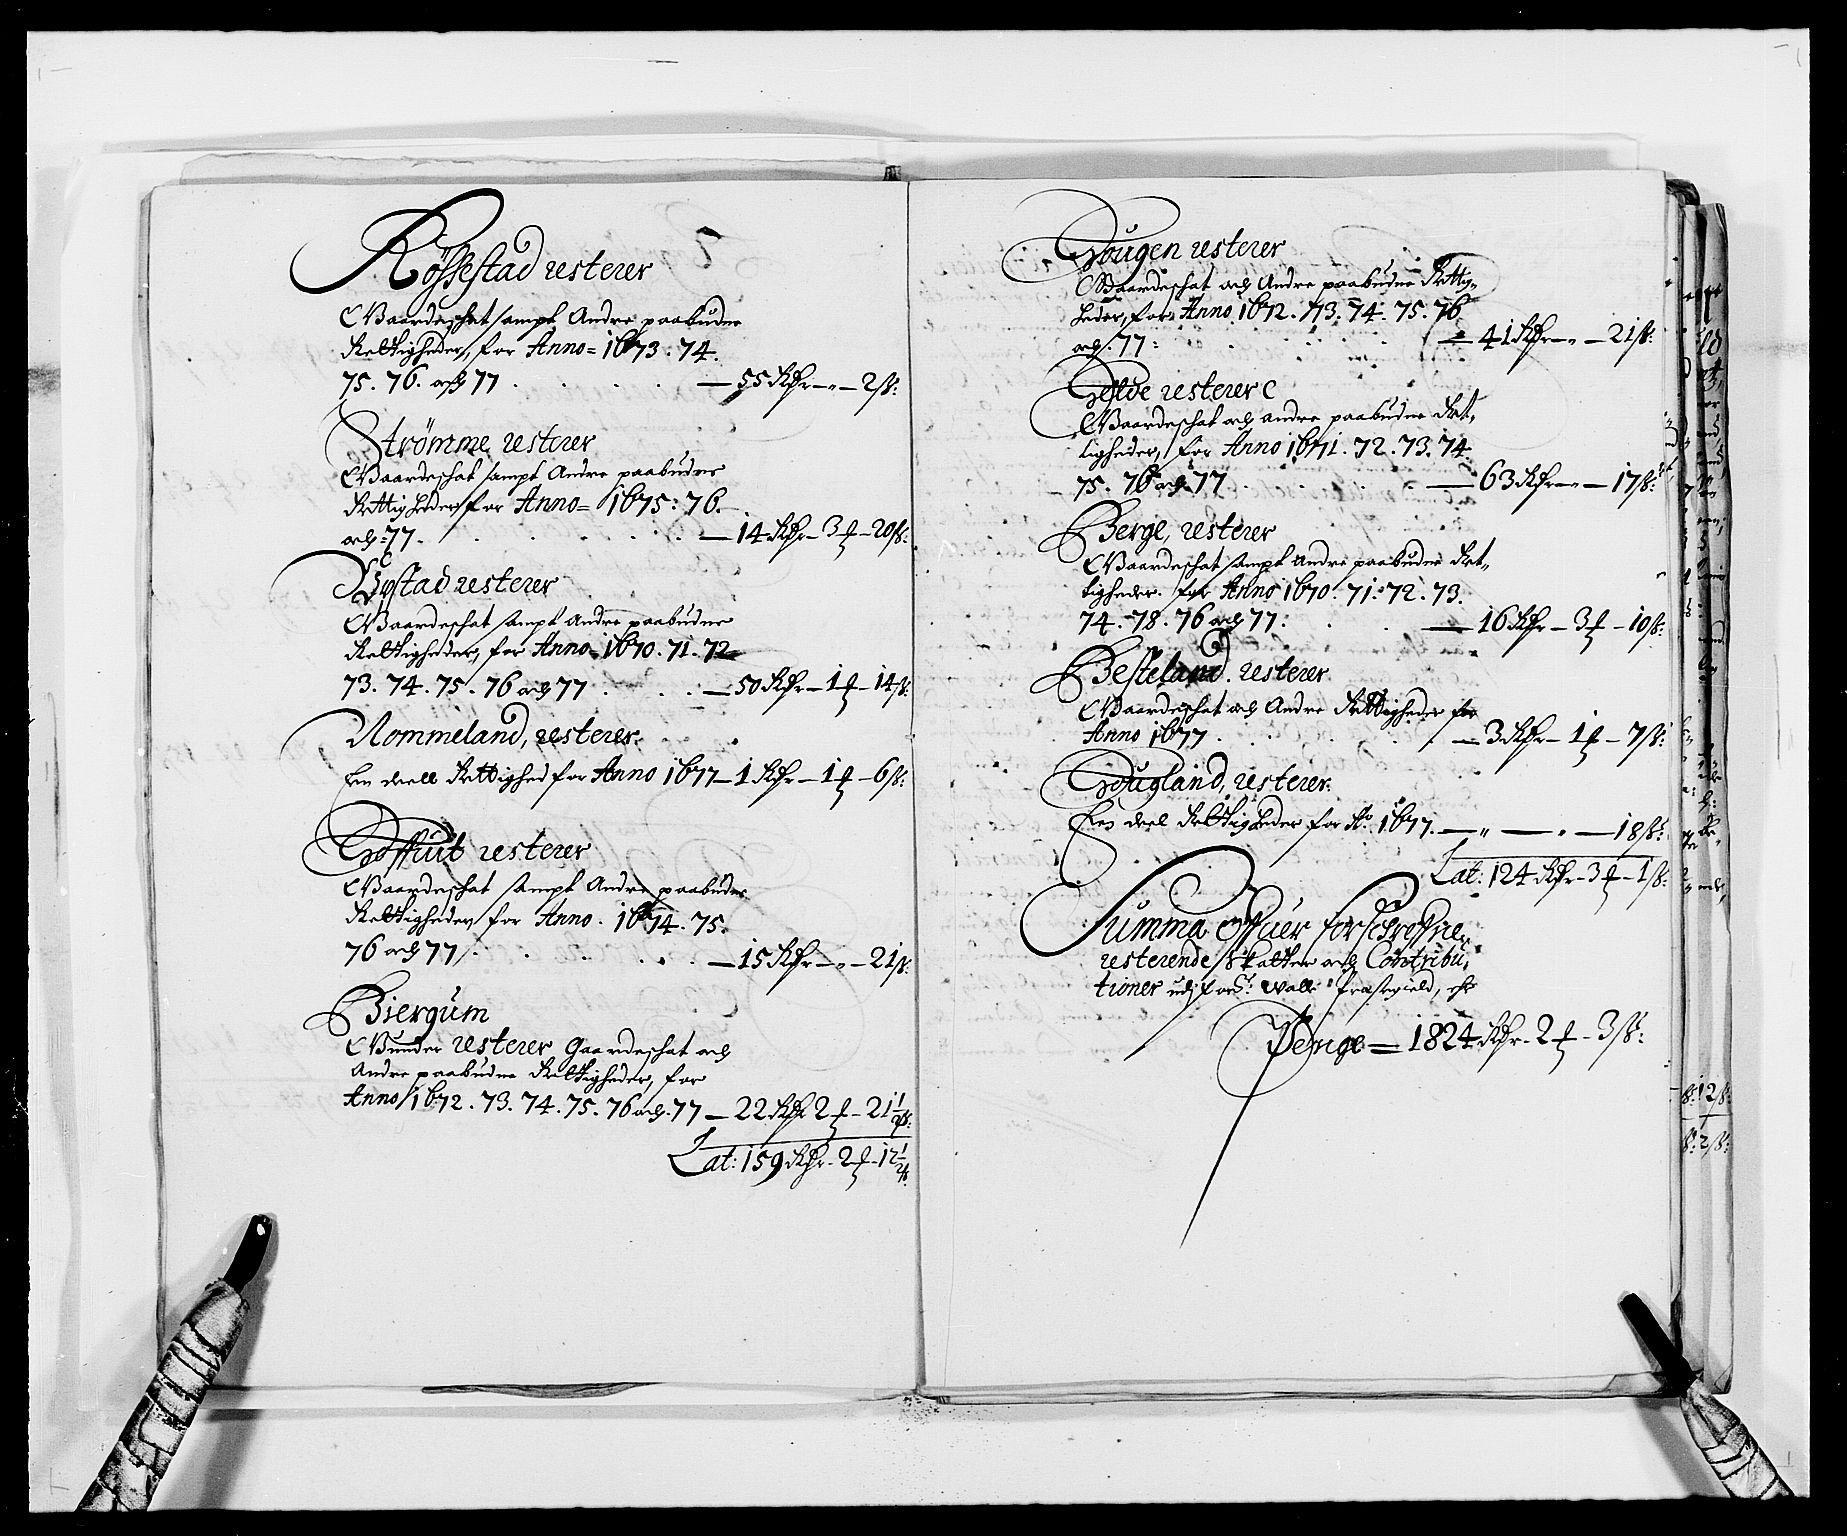 Rössestad resterer
Gaardeschat sampt Andre paabudne
Rettigheder, for Anno= 1673. 74.
75. 76. och 77 . . . . — 55 Rdr — " — 2 ß:
Strømme, resterer
Gaardeschat sampt Andre paabudne
Rettigheder for Anno= 1675: 76.
och: 77. . . . . . — 14 Rdr — 3 ƒ — 20 ß:
Systad resterer
Gaardeschat sampt Andre paabudne
Rettigheder, for Anno= 1670. 71. 72
73. 74. 75. 76 och 77 . . . — 50 Rdr — 1 ƒ — 14 ß:
Nommeland, resterer.
Een deell Rettighed for Anno 1677 — 1 Rdr — 1 ƒ — 6 ß:
resterer
Gaardeschat sampt Andre paabudne
Rettigheder for Anno. 1674. 75.
76 och 77 . . . . . — 15 Rdr — " — 21 ß:
Biergum
resterer Gaardeschat och
Andre paabudne Rettigheder, for
Anno 1672. 73. 74. 75. 76 och. 77 — 22 Rdr 2 ƒ — 21 1/2 ß:
Lat: 159 Rdr — 2 ƒ — 17 1/2 ß:
Hougen resterer
Gaardeschat och Andre paabudne Rettig=
heder, for Anno 1672. 73. 74. 75. 76
och. 77: . . . . — 41 Rdr — " — 21 ß:
resterer
Gaardeschat och andre paabudne Ret=
tigheder, for Anno 1671. 72. 73. 74
75. 76 och 77 . . . . — 63 Rdr — " — 17 ß:
Berge, resterer
Gaardeschat sampt Andre paabudne Ret=
tigheder. for Anno 1670. 71. 72. 73.
74. 78. 76 och 77: . . — 16 Rdr — 3 ƒ — 10 ß:
Besteland. resterer
Gaardeschat och Andre Rettigheder for
Anno 1677 . . . . — 3 Rdr — 1 ƒ — 7 ß:
Hougland, resterer.
Een deel Rettigheder for Ao. 1677. — " — " — 18 ß:
Lat: 124 Rdr — 3 ƒ — 1 ß:
Summa offuer forschreffne,
resterende Skatter och Contribu=
tioner udj forsr: Walle Prestegield, ehr
Penge = 1824 Rdr — 2 ƒ — 3 ß: